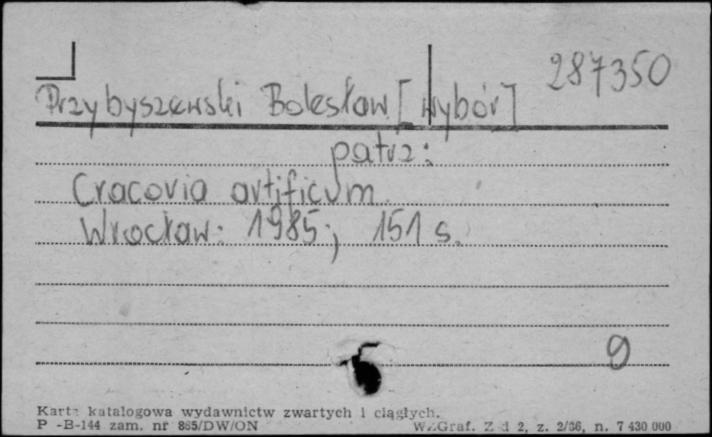 287350
Przybyszewski Bolesław [wybór]
patrz:
Cracovia artificum.
Wrocław: 1985; 151 s.
9
Karta katalogowa wydawnictw zwartych i ciągłych.
P -B-144 zam. nr 885/DW/ON W.Graf. Z d 2, z. 2/86, n. 7 430 000